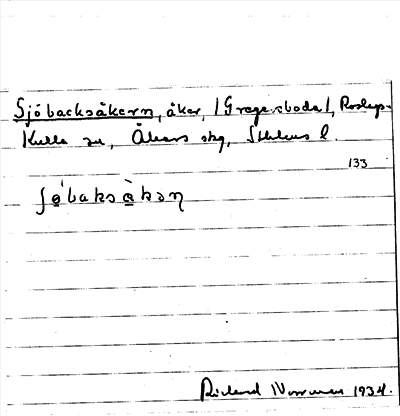 Sjöbacksåkern, åker, /Gregersboda/, Roslags-
Kulla sn, Åkers skg, Sthlms l.
133
ʃø̀baksàkəɳ
Rickard Norrman 1934.